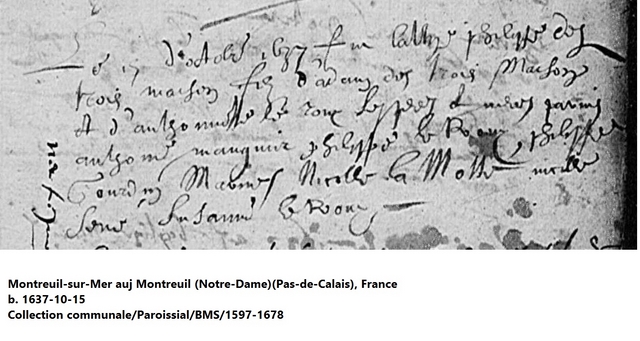 Le 15 d'octobre 1637 fut baptisé philippe des
trois maison fils d'adam des trois Maison
Et d'anthonnette le roux ses pere et mere parins
anthoine philippe le Roux philippe
Gourdin Marines Nicolle la Motte nicolle
Susanne le Roux
Montreuil-sur-Mer auj Montreuil (Notre-Dame)(Pas-de-Calais), France
b. 1637-10-15
Collection communale/Paroissial/BMS/1597-1678